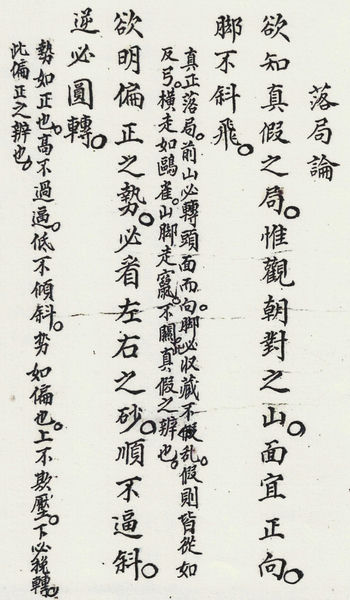 落局論
欲知真假之局。惟觀朝對之山。面宜正向。
脚不斜飛。
真正落局。前山必轉頭面而向。脚必收藏不乱。假則皆從如
反弓。橫走如鷗雀。山脚走竄。不關此真假之辨也。
欲明偏正之勢。必看左右之砂。順不逼斜。
逆必圓轉。
勢如正也。高不過逼。低不傾斜。势如偏也。上不欺壓。下必轉。
此偏正之辨也。